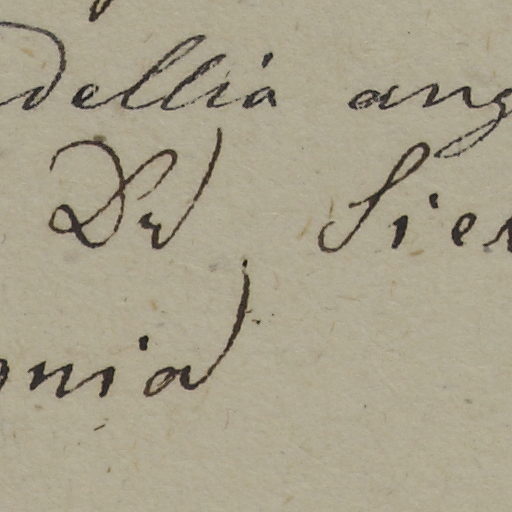 dellia ang
Dr Sie
onia